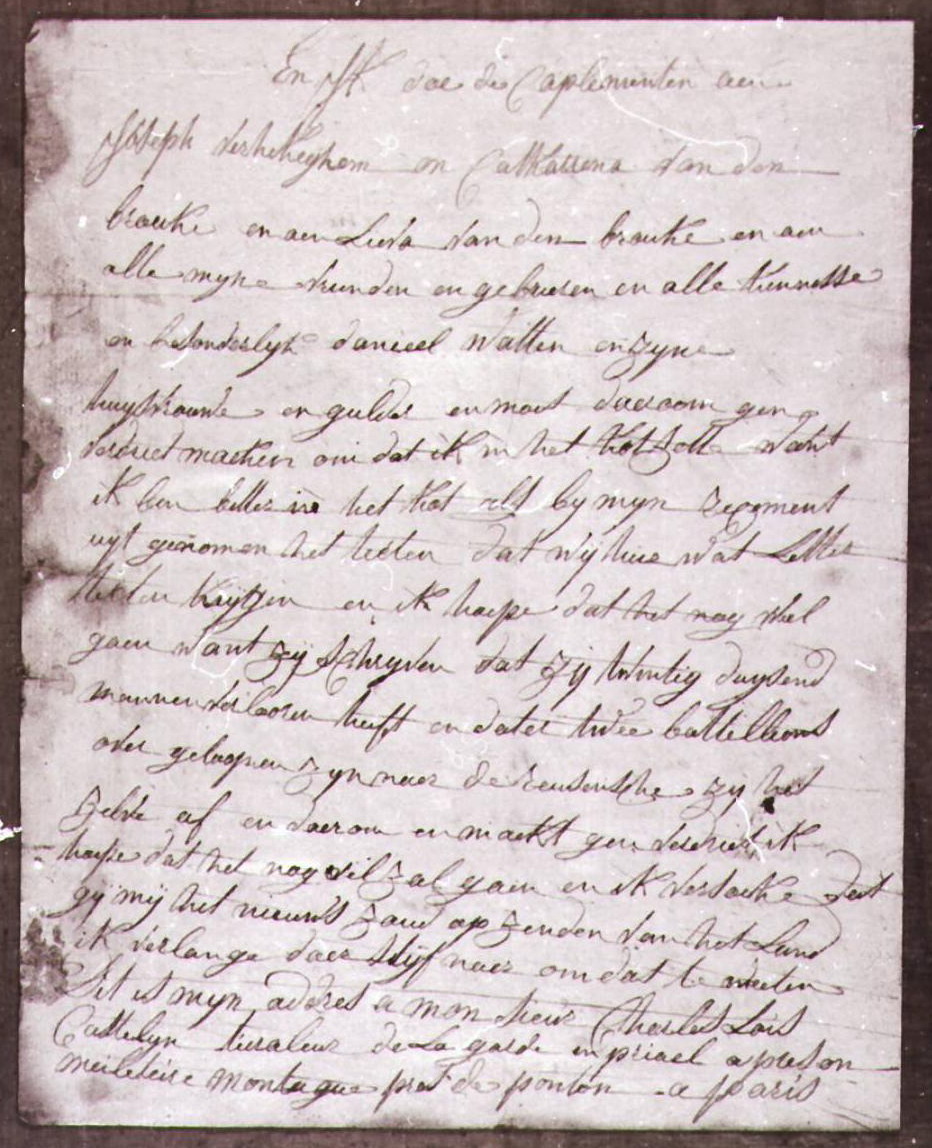 En Ik doe de Caplementen aen
Joseph verheKeghem en Cathatrena van den
brouke en aen Lieva van den brouke en aen
alle myne vrunden en gebueren en alle kennesse
en besonderlyk danieel Watten en zyne
huysvrouwe en gulder en moet daeroom gen
verdriet macken om dat ik in het Kot zette Want
ik ben better in het Kot als by myn regement
uyt genomen het teeten dat wy hier wat Letter
teeten krijtgen en ik hoepe dat het nog wel
gaen want zij schryven dat zij twintig duysend
mannen verlooren heeft en dater twee battellions
over geloopen zyn naer de reusensche zy het
zelve af en daerom en maekt gen verdriet ik
hoepe dat het nog wel zal gaen en ik versouke dat
gij mij het nieuws zaud op zenden van het Land
ik verlange daer stijf naer om dat te weeten
Dit is mijn addres a mon sieur Charles Lois
Cattelyn tieraleur de La garde enpriael a preson
meileteire montague pres de ponton a paris